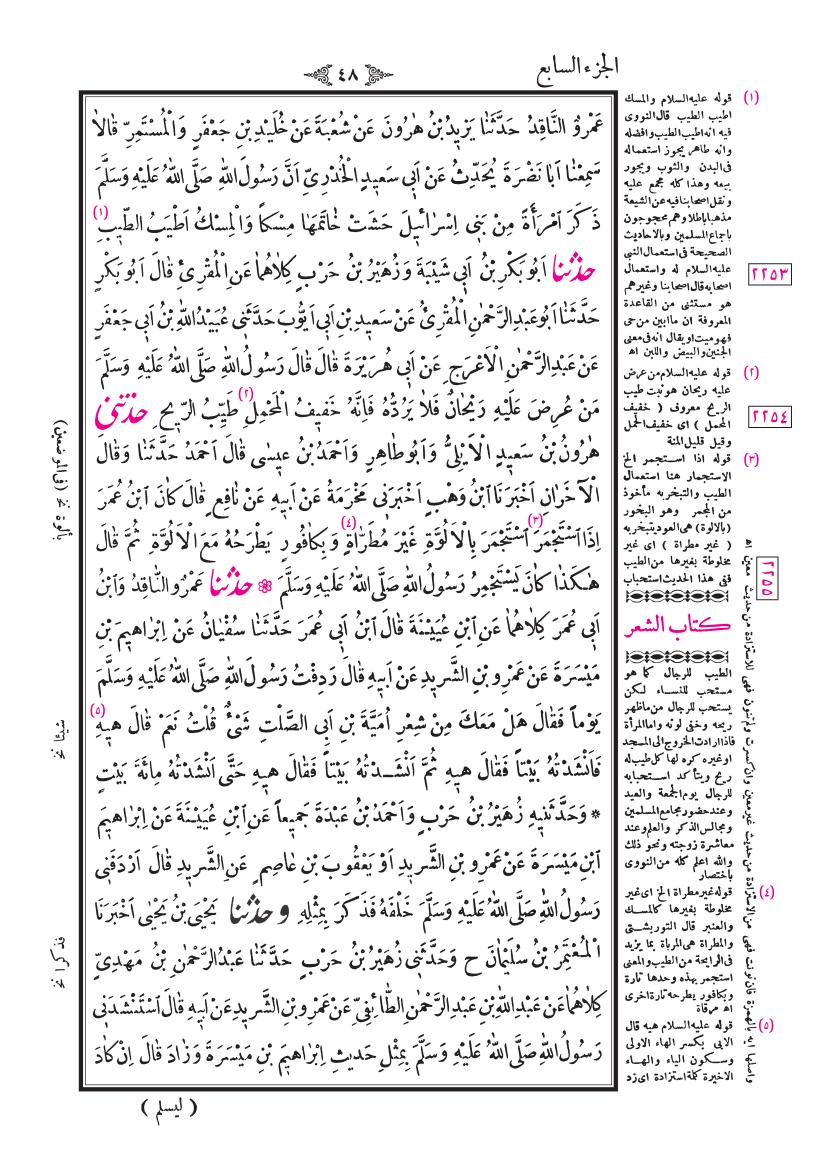 الجزء السابع
٤٨
عَمْرٌو النَّاقِدُ حَدَّثَنَا يَزِيدُ بْنُ هٰرُونَ عَنْ شُعْبَةَ عَنْ خُلَيْدِ بْنِ جَعْفَرٍ وَالْمُسْتَمِرِّ قَالَا
سَمِعْنَا اَبَا نَضْرَةَ يُحَدِّثُ عَنْ اَبِى سَعِيدٍ الْخُدْرِىِّ اَنَّ رَسُولَ اللهِ صَلَّى اللهُ عَلَيْهِ وَسَلَّمَ
ذَكَرَ امْرَأَةً مِنْ بَنِى اِسْرَائِيلَ حَشَتْ خَاتَمَهَا مِسْكاً وَالْمِسْكُ اَطْيَبُ الطِّيبِ (١)
حدثنا اَبُو بَكْرِ بْنُ اَبِى شَيْبَةَ وَزُهَيْرُ بْنُ حَرْبٍ كِلَاهُمَا عَنِ الْمُقْرِئِ قَالَ اَبُو بَكْرٍ
حَدَّثَنَا اَبُو عَبْدِ الرَّحْمٰنِ الْمُقْرِئُ عَنْ سَعِيدِ بْنِ اَبِى اَيُّوبَ حَدَّثَنِى عُبَيْدُ اللهِ بْنُ اَبِى جَعْفَرٍ
عَنْ عَبْدِ الرَّحْمٰنِ الْاَعْرَجِ عَنْ اَبِى هُرَيْرَةَ قَالَ قَالَ رَسُولُ اللهِ صَلَّى اللهُ عَلَيْهِ وَسَلَّمَ
مَنْ عُرِضَ عَلَيْهِ رَيْحَانٌ فَلَا يَرُدُّهُ فَاِنَّهُ خَفِيفُ الْمَحْمِلِ (٢) طَيِّبُ الرِّيحِ حدثنى
هٰرُونُ بْنُ سَعِيدٍ الْاَيْلِىُّ وَاَبُو طَاهِرٍ وَاَحْمَدُ بْنُ عِيسٰى قَالَ اَحْمَدُ حَدَّثَنَا وَقَالَ
الْآخَرَانِ اَخْبَرَنَا ابْنُ وَهْبٍ اَخْبَرَنِى مَخْرَمَةُ عَنْ اَبِيهِ عَنْ نَافِعٍ قَالَ كَانَ ابْنُ عُمَرَ
اِذَا اسْتَجْمَرَ (٣) اسْتَجْمَرَ بِالْاَلُوَّةِ غَيْرَ مُطَرَّاةٍ (٤) وَبِكَافُورٍ يَطْرَحُهُ مَعَ الْاَلُوَّةِ ثُمَّ قَالَ
هٰكَذَا كَانَ يَسْتَجْمِرُ رَسُولُ اللهِ صَلَّى اللهُ عَلَيْهِ وَسَلَّمَ ۞ حدثنا عَمْرٌو النَّاقِدُ وَابْنُ
اَبِى عُمَرَ كِلَاهُمَا عَنِ ابْنِ عُيَيْنَةَ قَالَ ابْنُ اَبِى عُمَرَ حَدَّثَنَا سُفْيَانُ عَنْ اِبْرَاهِيمَ بْنِ
مَيْسَرَةَ عَنْ عَمْرِو بْنِ الشَّرِيدِ عَنْ اَبِيهِ قَالَ رَدِفْتُ رَسُولَ اللهِ صَلَّى اللهُ عَلَيْهِ وَسَلَّمَ
يَوْماً فَقَالَ هَلْ مَعَكَ مِنْ شِعْرِ اُمَيَّةَ بْنِ اَبِى الصَّلْتِ شَىْءٌ قُلْتُ نَعَمْ قَالَ هِيهِ (٥)
فَاَنْشَدْتُهُ بَيْتاً فَقَالَ هِيهِ ثُمَّ اَنْشَدْتُهُ بَيْتاً فَقَالَ هِيهِ حَتَّى اَنْشَدْتُهُ مِائَةَ بَيْتٍ
* وَحَدَّثَنِيهِ زُهَيْرُ بْنُ حَرْبٍ وَاَحْمَدُ بْنُ عَبْدَةَ جَمِيعاً عَنِ ابْنِ عُيَيْنَةَ عَنْ اِبْرَاهِيمَ
ابْنِ مَيْسَرَةَ عَنْ عَمْرِو بْنِ الشَّرِيدِ اَوْ يَعْقُوبَ بْنِ عَاصِمٍ عَنِ الشَّرِيدِ قَالَ اَرْدَفَنِى
رَسُولُ اللهِ صَلَّى اللهُ عَلَيْهِ وَسَلَّمَ خَلْفَهُ فَذَكَرَ بِمِثْلِهِ وحدثنا يَحْيَى بْنُ يَحْيٰى اَخْبَرَنَا
الْمُعْتَمِرُ بْنُ سُلَيْمَانَ ح وَحَدَّثَنِى زُهَيْرُ بْنُ حَرْبٍ حَدَّثَنَا عَبْدُ الرَّحْمٰنِ بْنُ مَهْدِىٍّ
كِلَاهُمَا عَنْ عَبْدِ اللهِ بْنِ عَبْدِ الرَّحْمٰنِ الطَّائِفِىِّ عَنْ عَمْرِو بْنِ الشَّرِيدِ عَنْ اَبِيهِ قَالَ اسْتَنْشَدَنِى
رَسُولُ اللهِ صَلَّى اللهُ عَلَيْهِ وَسَلَّمَ بِمِثْلِ حَدِيثِ اِبْرَاهِيمَ بْنِ مَيْسَرَةَ وَزَادَ قَالَ اِنْ كَادَ
( ليسلم )
(١) قوله عليه السلام والمسك
اطيب الطيب قال النووى
فيه انه اطيب الطيب وافضله
وانه طاهر يجوز استعماله
فى البدن والثوب ويجوز
بيعه وهذا كله مجمع عليه
ونقل اصحابنا فيه عن الشيعة
مذهبا باطلا وهم محجوجون
باجماع المسلمين وبالاحاديث
الصحيحة فى استعمال النبى
عليه السلام له واستعمال
اصحابه قال اصحابنا وغيرهم
هو مستثنى من القاعدة
المعروفة ان ما ابين من حى
فهو ميت او يقال انه فى معنى
الجنين والبيض واللبن اه
(٢) قوله عليه السلام من عرض
عليه ريحان هو نبت طيب
الريح معروف ( خفيف
المحمل ) اى خفيف الحمل
وقيل قليل المنة
(٣) قوله اذا استجمر الخ
الاستجمار هنا استعمال
الطيب والتبخر به مأخوذ
من المجمر وهو البخور
(بالالوة) هى العود يتبخر به
( غير مطراة ) اى غير
مخلوطة بغيرها من الطيب
فى هذا الحديث استحباب
كتاب الشعر
الطيب للرجال كما هو
مستحب للنساء لكن
يستحب للرجال من ماظهر
ريحه وخفى لونه واما المرأة
فاذا ارادت الخروج الى المسجد
او غيره كره لها كل طيب له
ريح ويتأكد استحبابه
للرجال يوم الجمعة والعيد
وعند حضور مجامع المسلمين
ومجالس الذكر والعلم وعند
معاشرة زوجته ونحو ذلك
والله اعلم كله من النووى
باختصار
(٤) قوله غير مطراة الخ اى غير
مخلوطة بغيرها كالمسك
والعنبر قال التوربشتى
والمطراة هى المرباة بما يزيد
فى الرايحة من الطيب والمعنى
استجمر بهذه وحدها تارة
وبكافور يطرحه تارة اخرى
اه مرقاة
(٥) قوله عليه السلام هيه قال
الابى بكسر الهاء الاولى
وسكون الياء والهاء
الاخيرة كلمة استزادة اى زد
واصلها ايه بالهمزة فان نونت فهى من الاستزادة من حديث غير معين وان كسرت ولم تنون فهى للاستزادة من حديث معين اه
٢٢٥٣
٢٢٥٤
٢٢٥٥
بألوة نخ (فى الموضعين)
فذكرا نخ